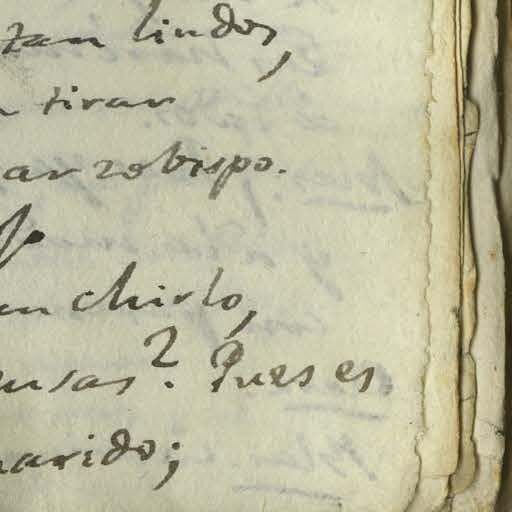 tan lindos,
tirar
arzobispo.
chirlo,
usas? Pues es
marido;